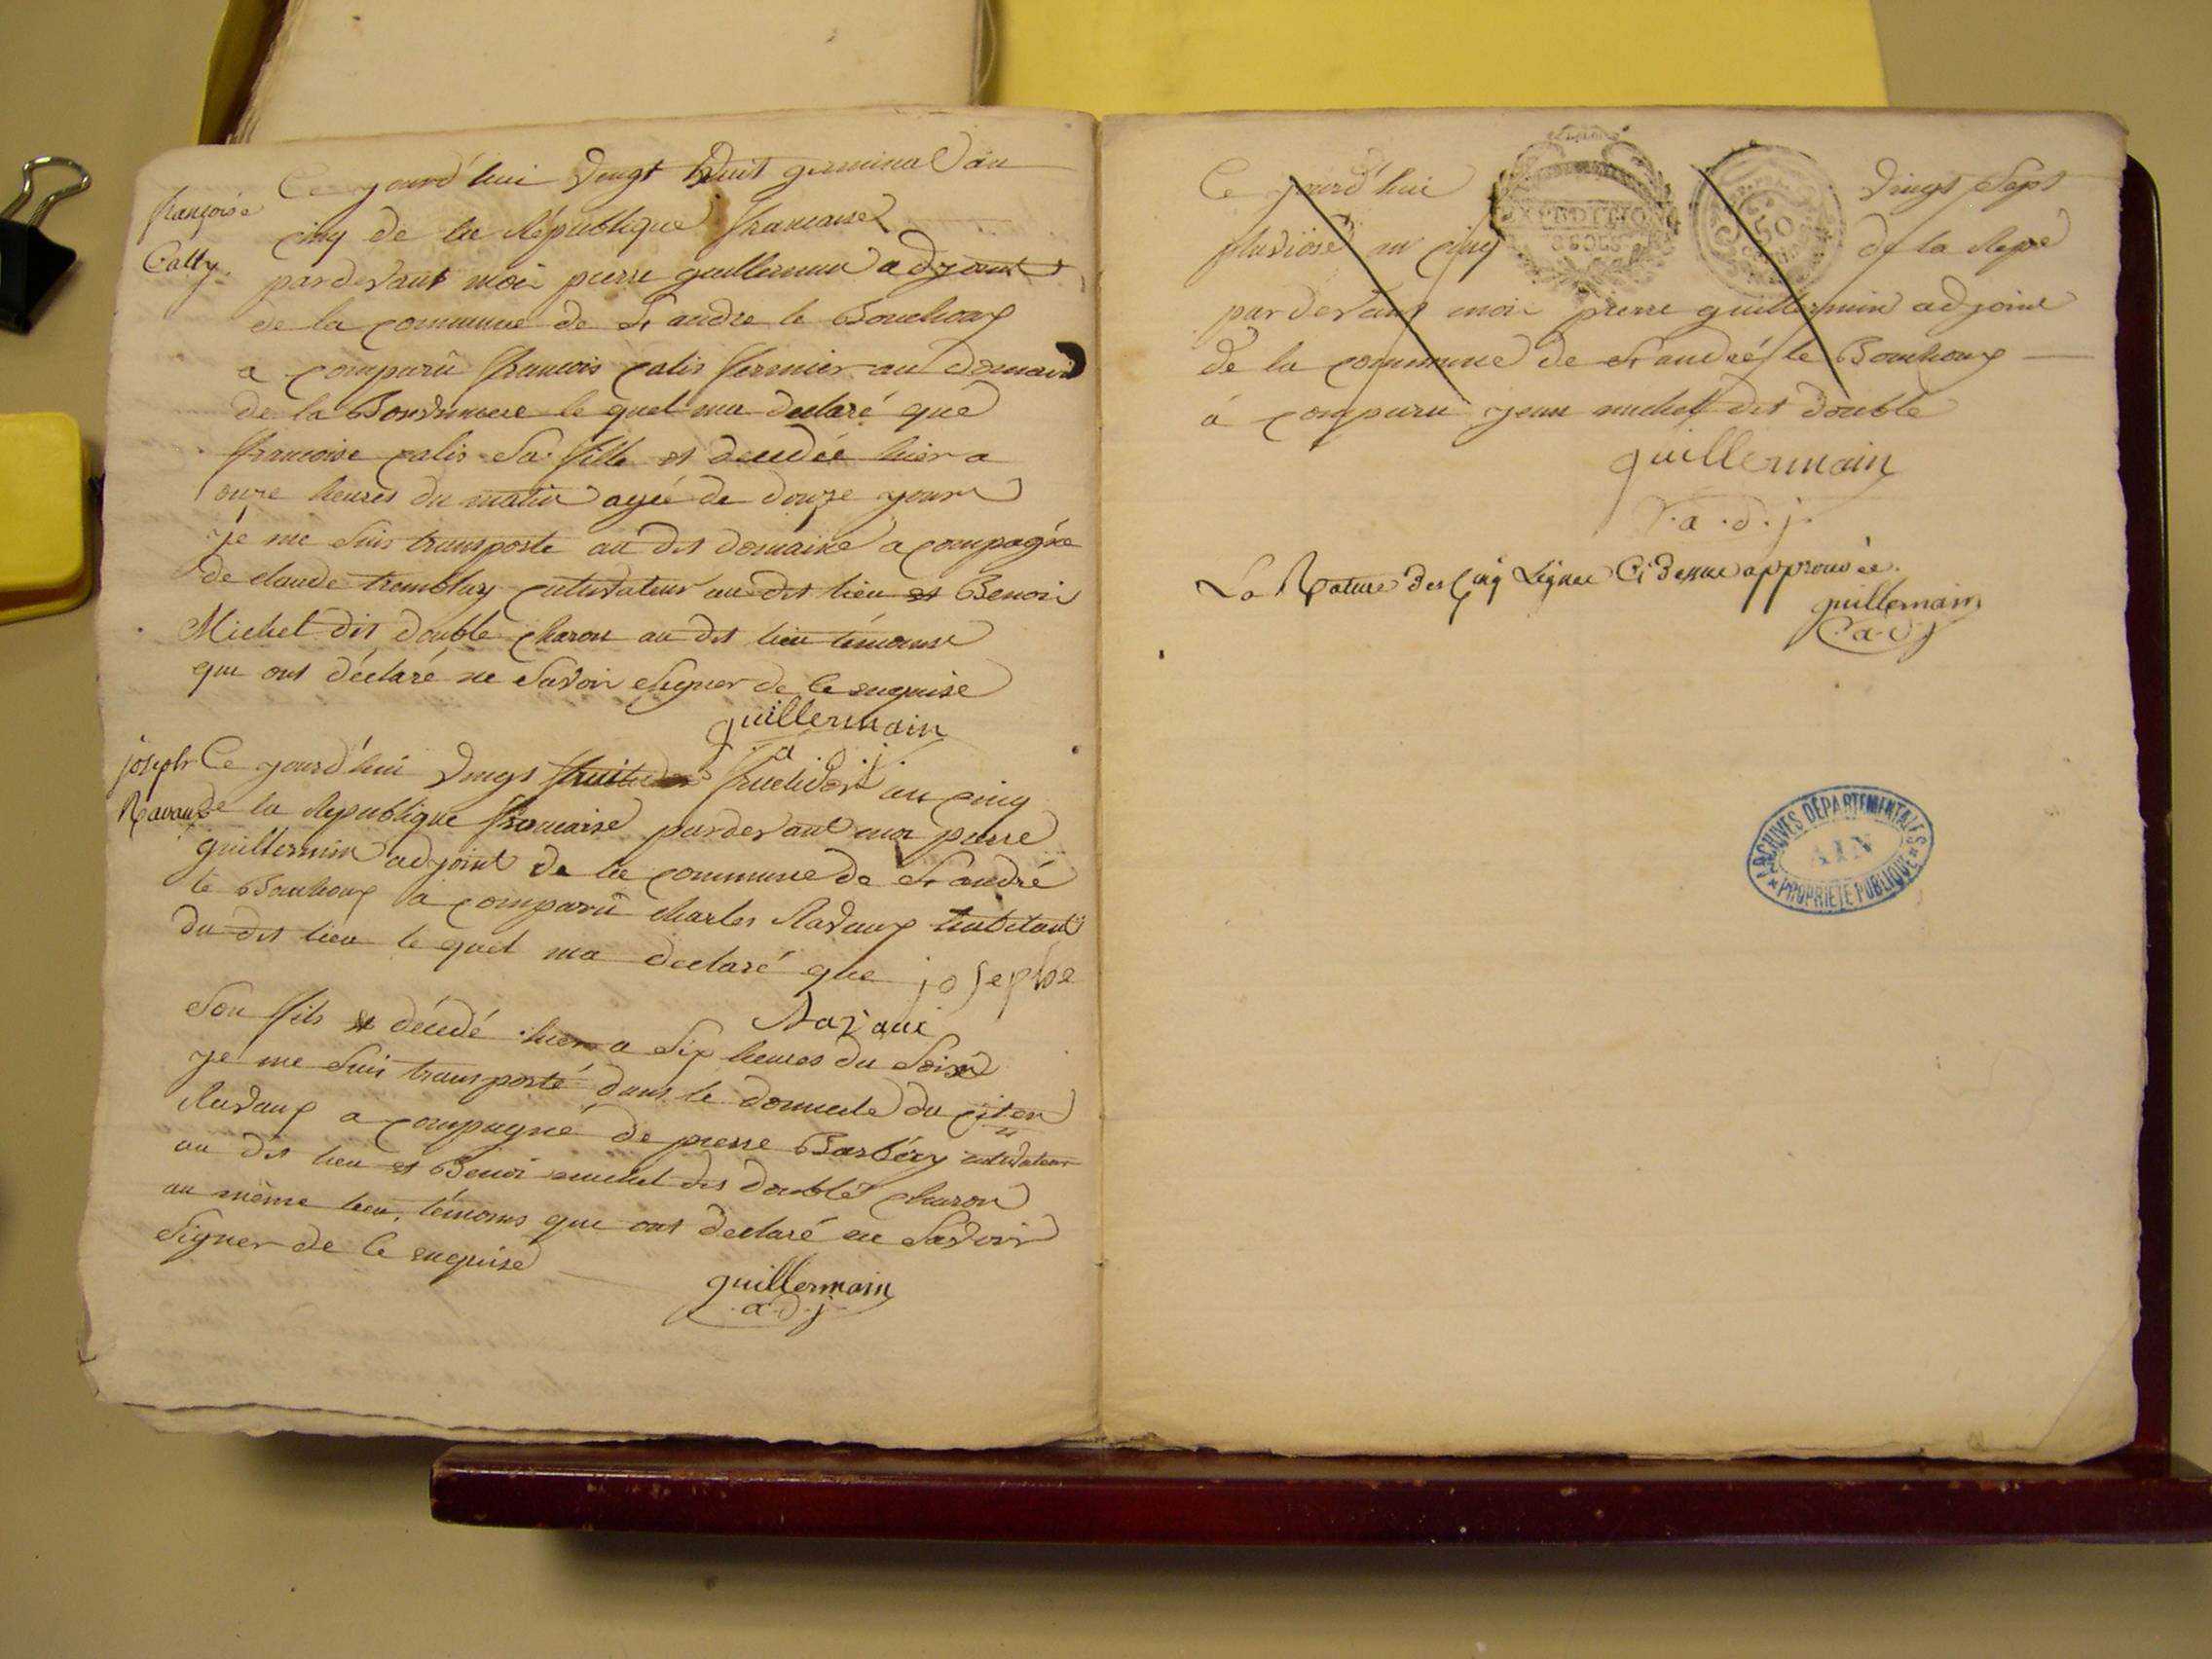 françoise
Catty.
Ce yourd'hui vingt huit germinal an
cinq de la République francaise
pardevant moi pierre guillermin adjoint
de la commune de St andre le Bouchoux
a comparû francois catis fermier au domaine
de la                le quel ma declaré que
francoise catis sa fille et decedée hier a
onze heures du matin agée de douze yours
je me suis transporté au dit domaine acompagné
de claude tremblay cultivateur au dit lieu et Benoi
Michel dit double charon au dit lieu témoins
qui ont déclaré ne savoir signer de ce enquise
guillermain
a . d . j
joseph
Ravaux
Ce yourd'hui vingt fructidor an cinq
de la Republique francaise pardevant moi pierre
guillermin adjoint de la commune de St andré
le Bouchoux a comparû charles Ravaux habitant
du dit lieu le quel ma declaré que josephe
Ravaui
son fils et décédé hier a six heures du soir
je me suis transporté dans le domicile du citen
Ravaux acompagné de pierre Barbéry cultivateur
au dit lieu et Benoi michel dit double charon
au même lieu, témoins qui ont declaré ne savoir
signer de ce enquise
guillermain
a . d . j
Ce yourd'hui vingt sept
pluviöse an cinq de la Repe
EXPEDITION
50
pardevant moi pierre guillermin adjoint
de la commune de St andré le Bouchoux
à comparu jean michel dit double
guillermain
. a . d . j .
La Rature des Cinq Lignes Ci dessus approuvée.
guillermain
. a . d . j
ARCHIVES DÉPARTEMENTALES
AIN
* PROPRIÉTÉ PUBLIQUE *